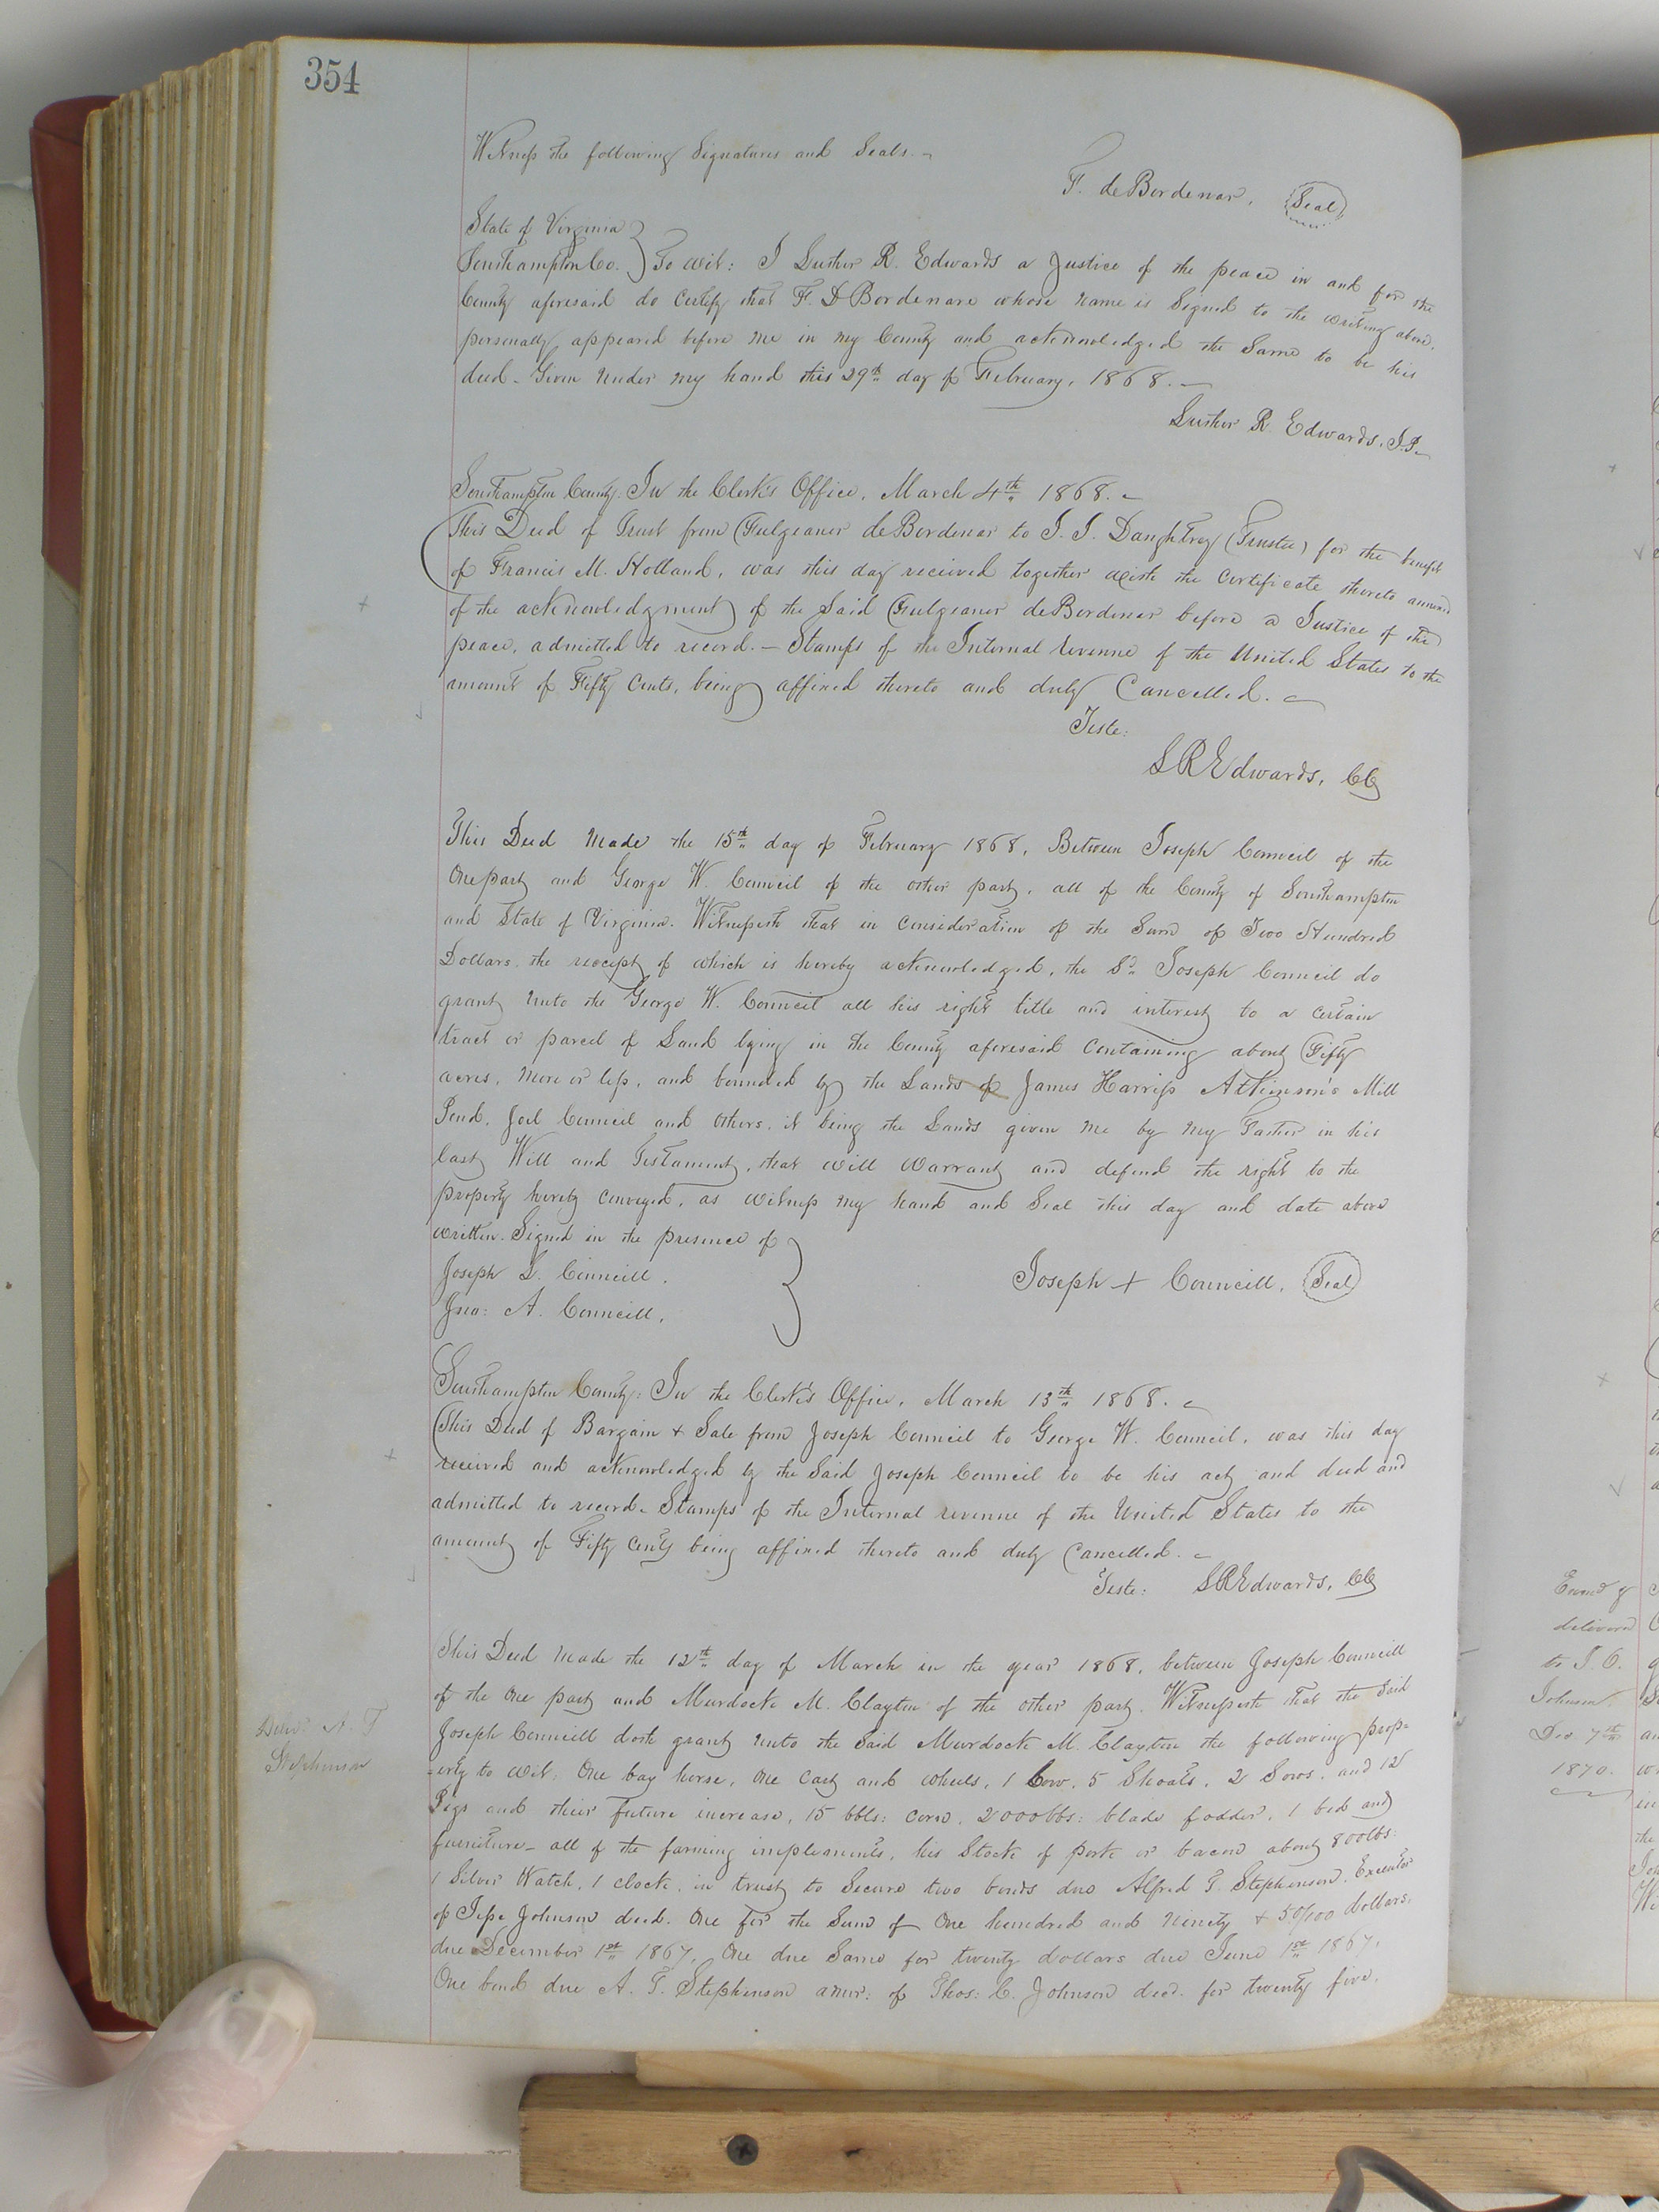 354
Witness the following Signatures and Seals.
F. deBordenar, Seal
State of Virginia
Southampton Co. } To wit: I Luther R. Edwards a Justice of the peace in and for the
County aforesaid do Certify that F. D Bordenare whose name is Signed to the writing above,
personally appeared before me in my County and acknowledged the Same to be his
deed. Given under my hand this 29th day of February, 1868.
Luther R. Edwards, J.P.
Southampton County. In the Clerk's Office, March 4th 1868.
This Deed of Trust from Fulgeaner deBordenar to J. J. Daughtrey (Trustee) for the benefit
of Francis M. Holland, was this day received together with the Certificate thereto annexed
of the acknowledgment of the Said Fulgeaner deBordenar before a Justice of the
peace, admitted to record. Stamps of the Internal Revenue of the United States to the
amount of Fifty Cents, being affixed thereto and duly Cancelled.
Teste:
LREdwards, CC
This Deed Made the 15th day of February 1868, Between Joseph Council of the
One part and George W. Council of the other part, all of the County of Southampton
and State of Virginia. Witnesseth that in Consideration of the Sum of Two Hundred
Dollars, the receipt of which is hereby acknowledged, the Sd Joseph Council do
grant unto the George W. Council all his right title and interest to a certain
tract or parcel of Land lying in the County aforesaid Containing about Fifty
acres, more or less, and bounded by the Lands of James Harriss Atkinson's Mill
Pond, Joel Council and Others, it being the Lands given me by my Father in his
last Will and Testament, that will Warrant and defend the right to the
property hereby conveyed, as witness my hand and Seal this day and date above
written. Signed in the presence of
Joseph L. Councill.
Joseph + Councill, Seal
Jno: A. Councill,
Southampton County: In the Clerk's Office, March 13th 1868.
This Deed of Bargain & Sale from Joseph Council to George W. Council, was this day
received and acknowledged by the Said Joseph Council to be his act and deed and
admitted to record. Stamps of the Internal revenue of the United States to the
amount of Fifty Cents being affixed thereto and duly Cancelled.
Teste: LREdwards, CC
This Deed Made the 12th day of March in the year 1868, between Joseph Councill
of the One part and Murdock M. Clayton of the other part. Witnesseth that the Said
Joseph Councill doth grant unto the Said Murdock M. Clayton the following prop-
-erty to wit: One bay horse, One Cart and wheels, 1 Cow, 5 Shoats, 2 Sows, and 12
Pigs and their future increase, 15 bbls: corn, 2000lbs: blade fodder, 1 bed and
furniture - all of the farming implements, his Stock of pork or bacon about 800lbs:
1 Silver Watch, 1 clock, in trust to Secure two bonds due Alfred T. Stephenson, Executor
of Jesse Johnson decd. One for the Sum of One hundred and Ninety & 50/100 dollars,
due December 1st 1867, One due Same for twenty dollars due June 1st 1867,
One bond due A. T. Stephenson amr: of Thos: C. Johnson decd. for twenty five,
A. T
Stephenson
delivered
to J. O.
Johnson.
Dec 7th
1870.